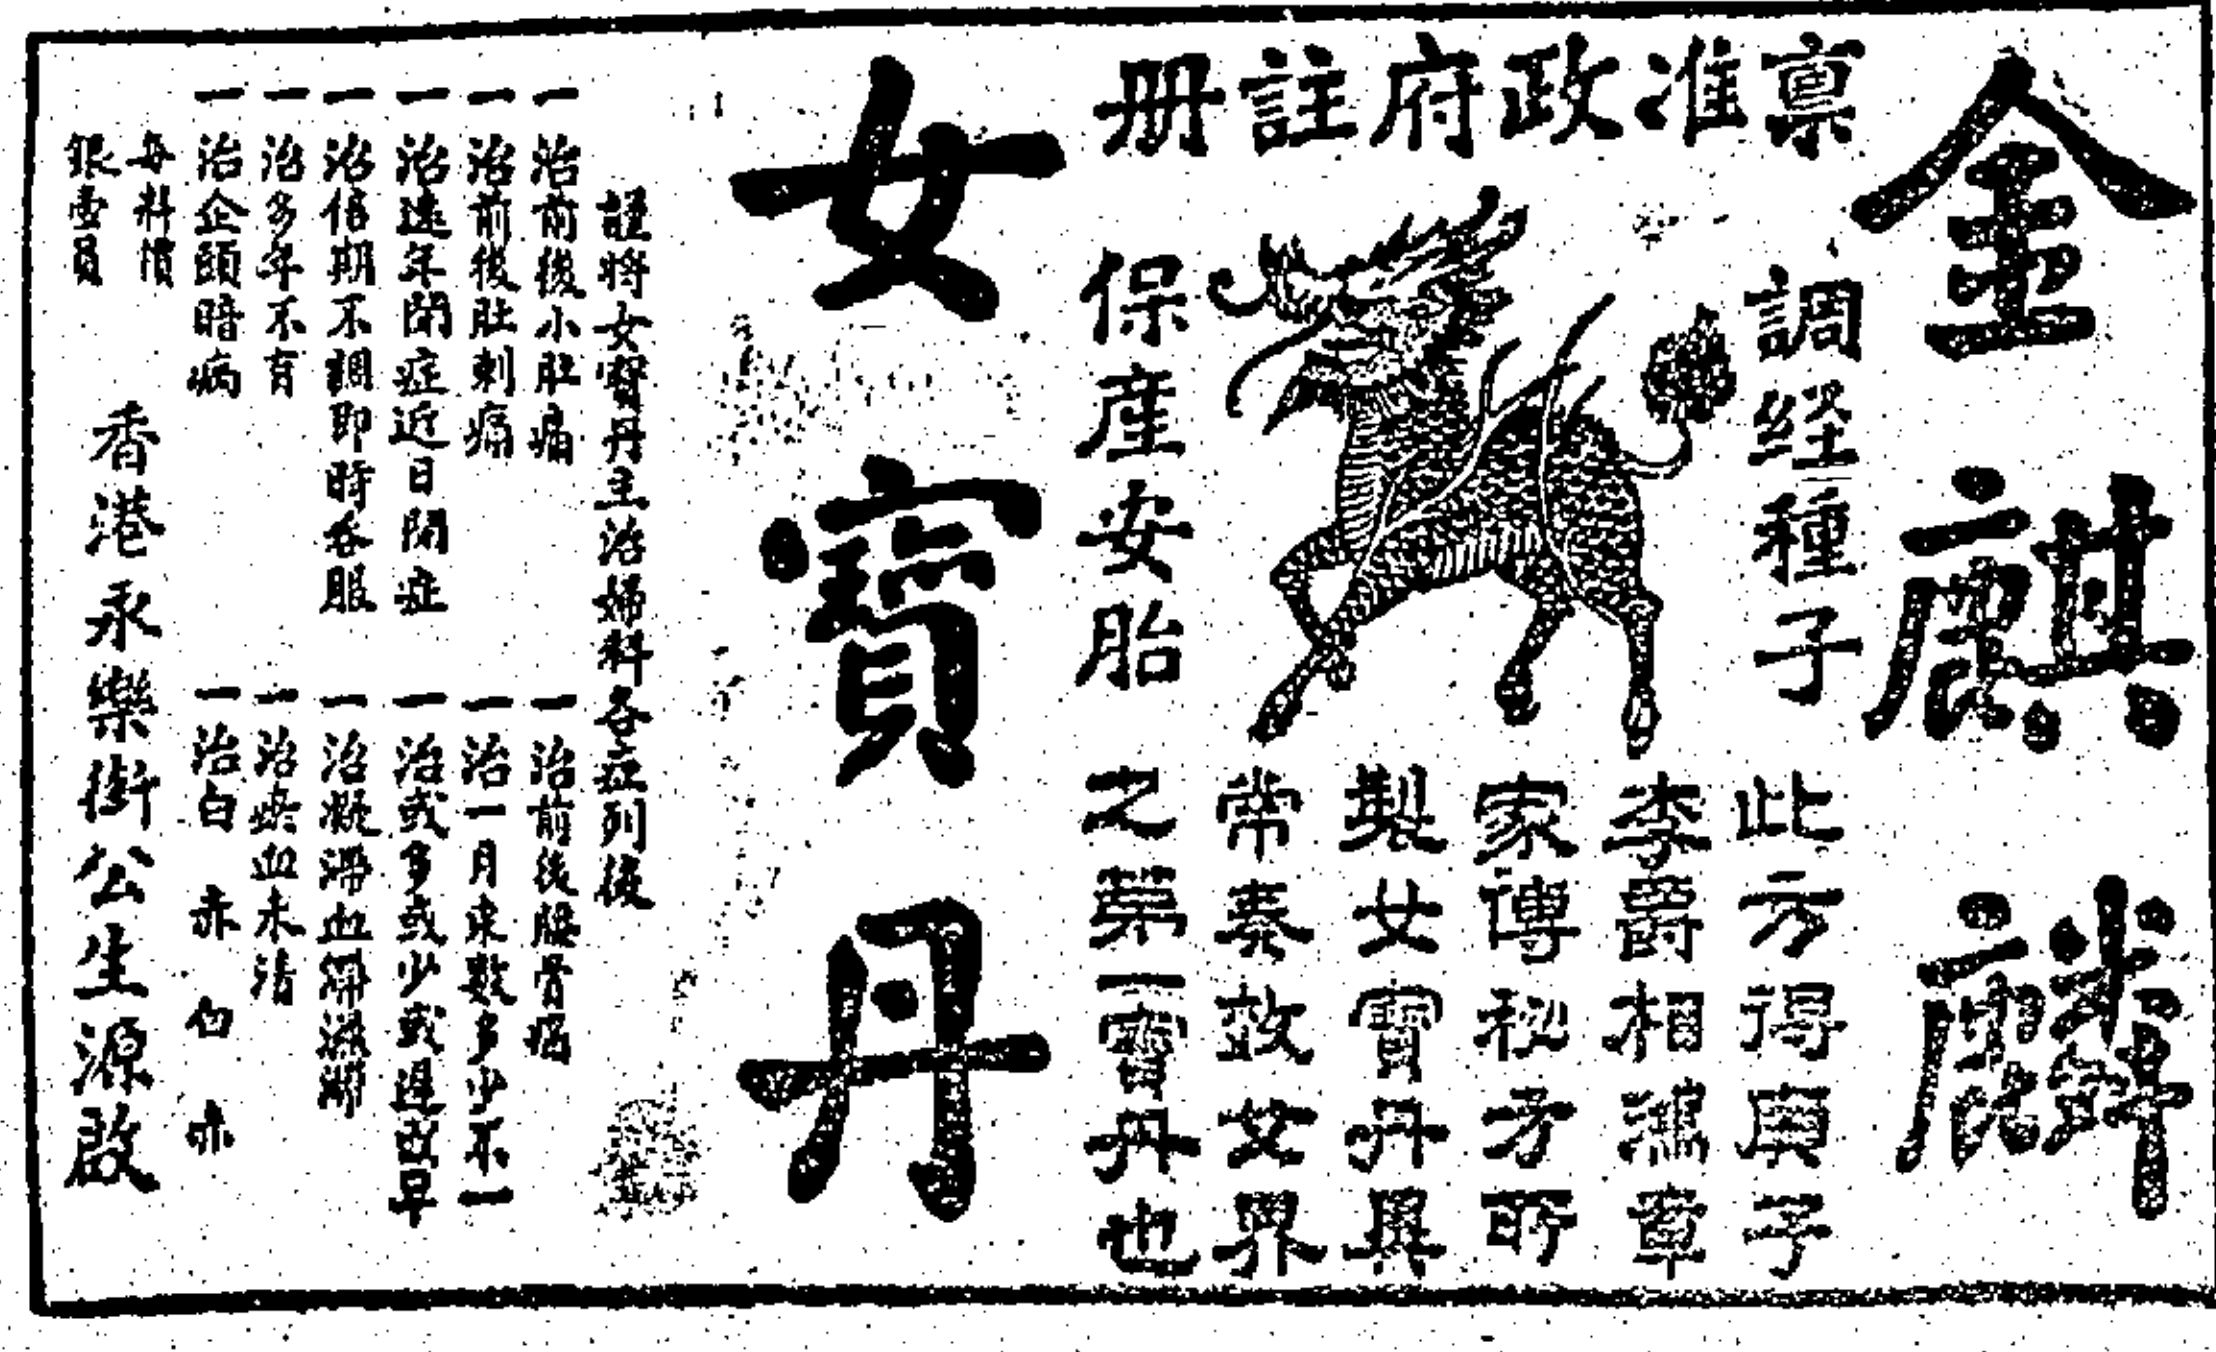 金麒麟
禀准政府註冊
調経種子
保產安胎
此方得與子
李爵相鴻章
家傳秘方所
製女寶丹異
常奏效女界
之第一寶丹也
女寶丹
謹將女寶丹主治婦科各症列後
一治前後小肚痛
一治前後肚刺痛
一治遠年閉症近日閉症
一治信期不調即時吞服
一治多年不育
一治企頭暗病
一治前後腰骨痛
一治一月來數多少不一
一治或多或少或遲或早
一治凝滯血
一治瘀血未清
一治白赤白赤
每料價
銀壹員
香港永樂街公生源啟